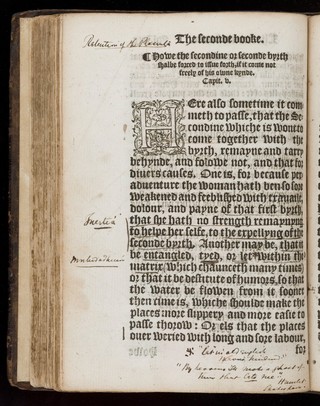 Retention of the Placenta
The seconde booke.
Howe the secondine or seconde byrth
shalbe forced to issue forth, if it come not
freely of his owne kynde.
Capit. v.
HEre also sometime it com
meth to passe, that the Se
condine whiche is wont to
come together with the
byrth, remayne and tary
behynde, and folowe not, and that for
diuers causes. One is, for because per
aduenture the woman hath ben so sore
weakened and feeblished with trauayle,
dolour, and payne of that first byrth,
that she hath no strength remaynyng
to helpe her selfe, to the expellyng of the
seconde byrth. Another may be, that it
be entangled, tyed, or let within the
matrix (which chaunceth many times)
or that it be destitute of humors, so that
the water be flowen from it sooner
then time is, whiche shoulde make the
places more slippery and more easie to
passe thorow: Or els that the places
ouer weried with long and sore labour,
for
Inertia
"By heaven I'll make a ghost of
him that lets me."
Hamlet